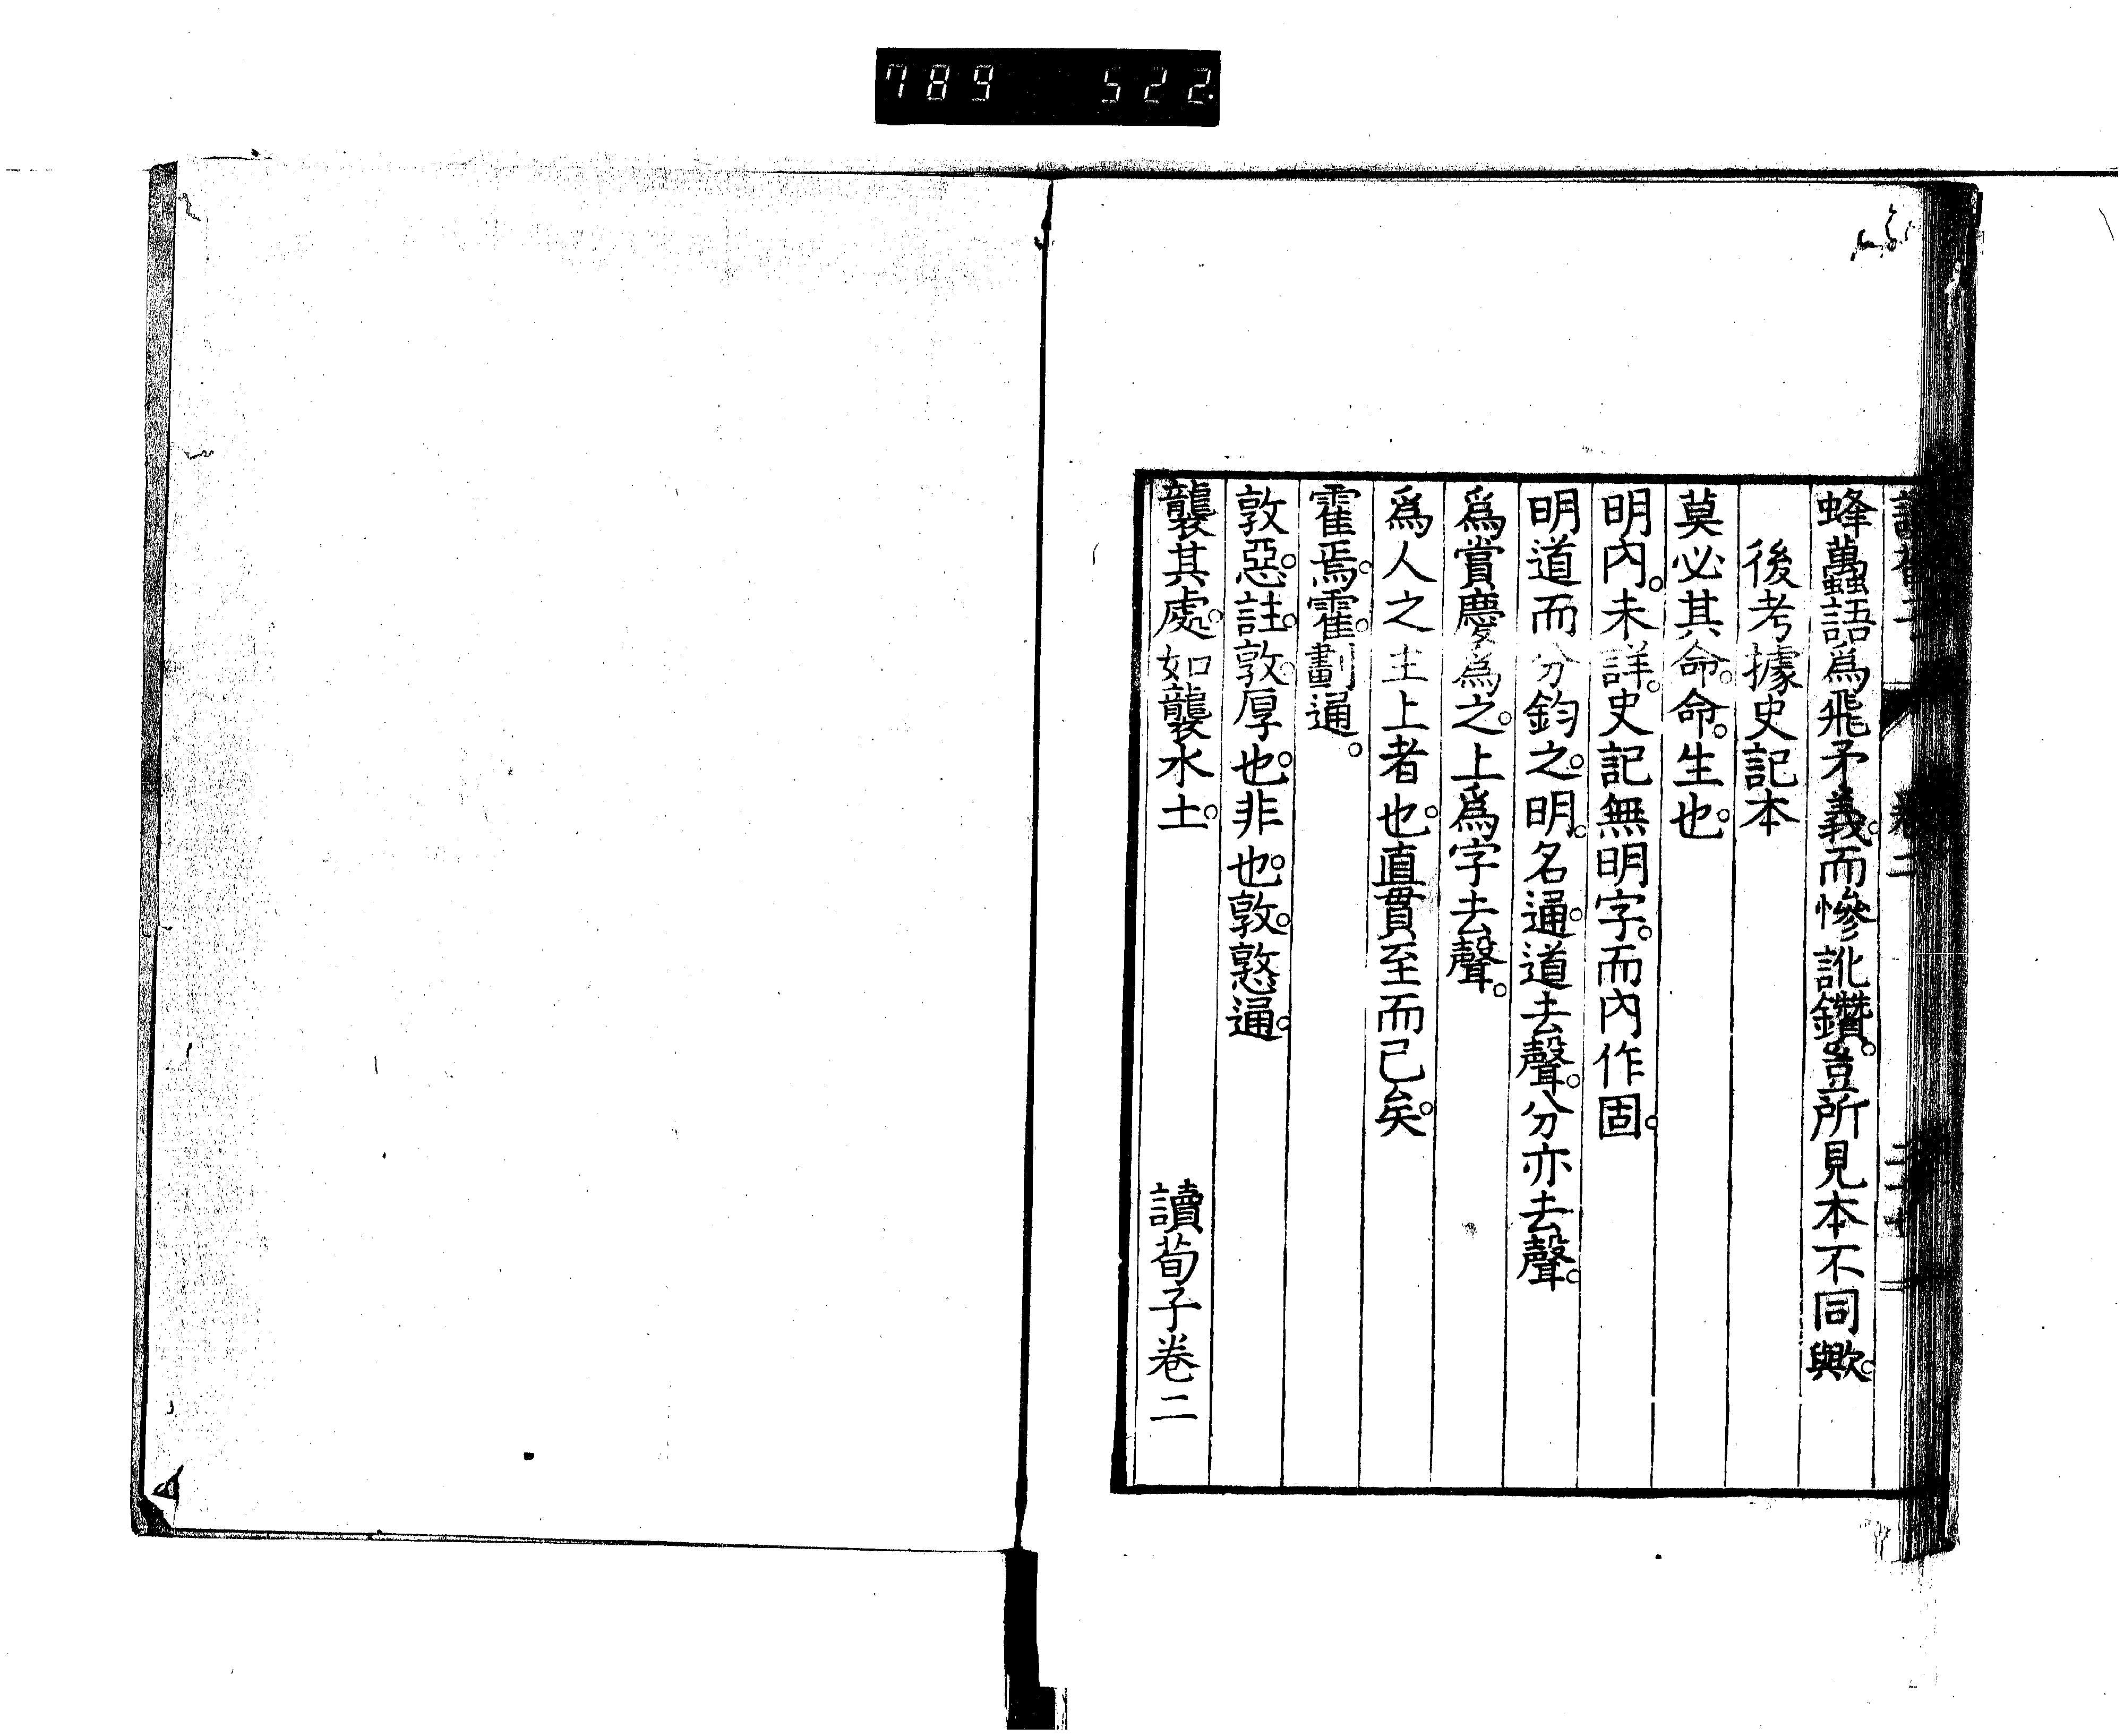 789 522
蜂蠆語爲飛矛義。而慘訛鑽。豈所見本不同歟。
後考據史記本
莫必其命。命。生也。
明內。未詳。史記無明字。而內作固。
明道而分鈞之。明。名通。道去聲。分亦去聲。
爲賞慶爲之。上爲字去聲。
爲人之主上者也。直貫至而已矣。
霍焉。霍。劃通。
敦惡。註。敦。厚也。非也。敦。憝通。
襲其處。如襲水土。
讀荀子卷二